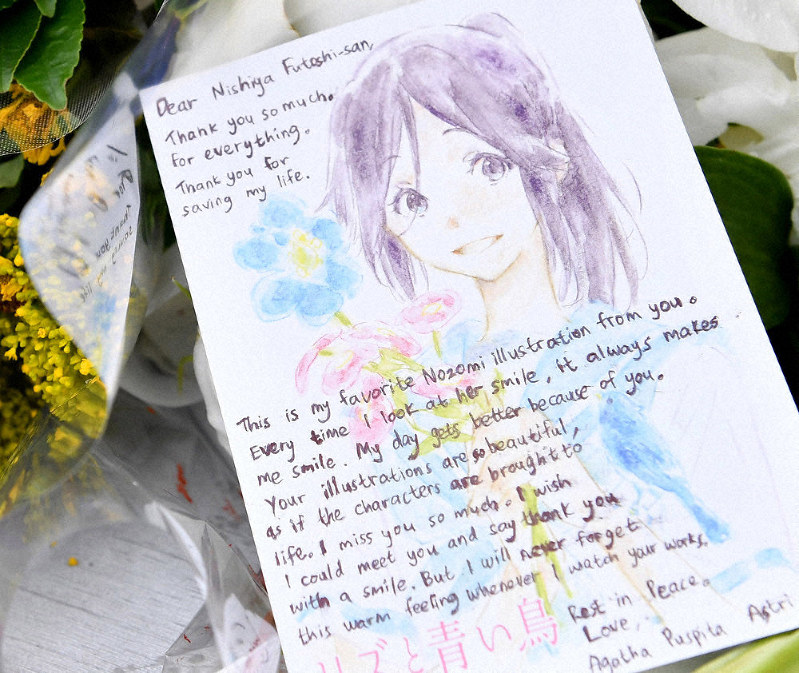 Dear Nishiya Futoshi-san,
Thank you so much.
For everything.
Thank you for
saving my life.
This is my favorite Nozomi illustration from you.
Every time I look at her smile, it always makes
me smile. My day gets better because of you.
Your illustrations are so beautiful,
as if the characters are brought to
life. I miss you so much. I wish
I could meet you and say thank you
with a smile. But I will never forget
this warm feeling whenever I watch your works.
Rest in Peace.
Love,
Agatha Puspita Astri
リズと青い鳥